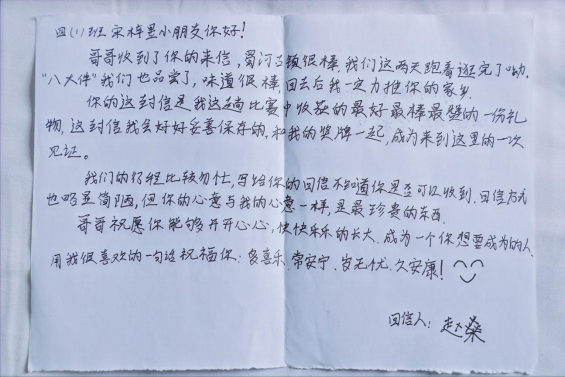 四(1)班宋梓墨小朋友你好!
哥哥收到了你的来信,蜀河古镇很棒,我们这两天跑着逛完了呦,
"八大件"我们也品尝了,味道很棒,回去后我一定力推你的家乡.
你的这封信是我这趟比赛中收获的最好最棒最壁的一份礼
物,这封信我会好好妥善保存的,和我的奖牌一起,成为来到这里的一次
见证。
我们的行程比较匆忙,写给你的回信不知道你是否可以收到.回信方式
也略显简陋,但你的心意与我的心意一样,是最珍贵的东西.
哥哥祝愿你能够开开心心,快快乐乐的长大.成为一个你想要成为的人.
用我很喜欢的一句话祝福你:多喜乐.常安宁.岁无忧.久安康!
回信人:赵燊